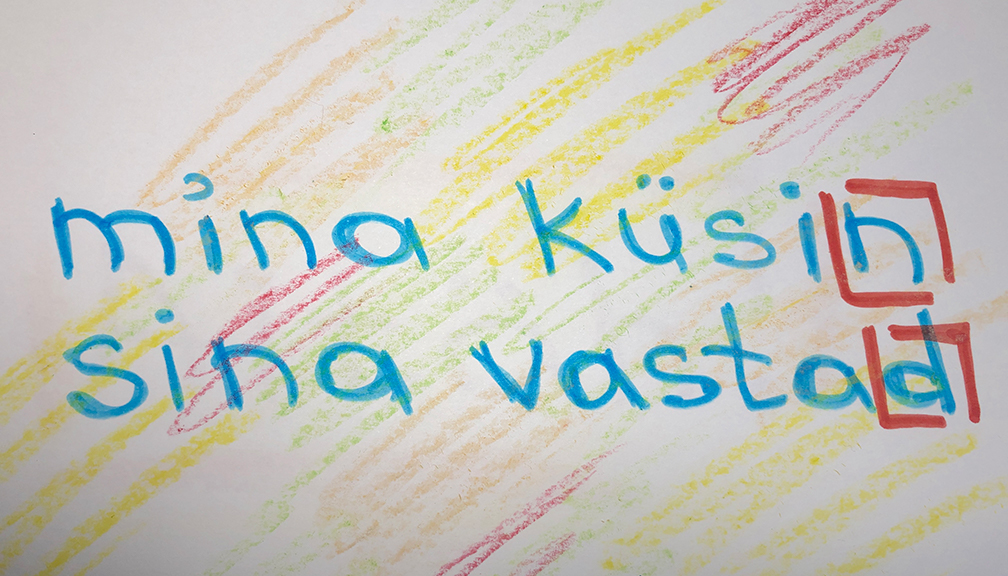 mina küsin
sina vastad